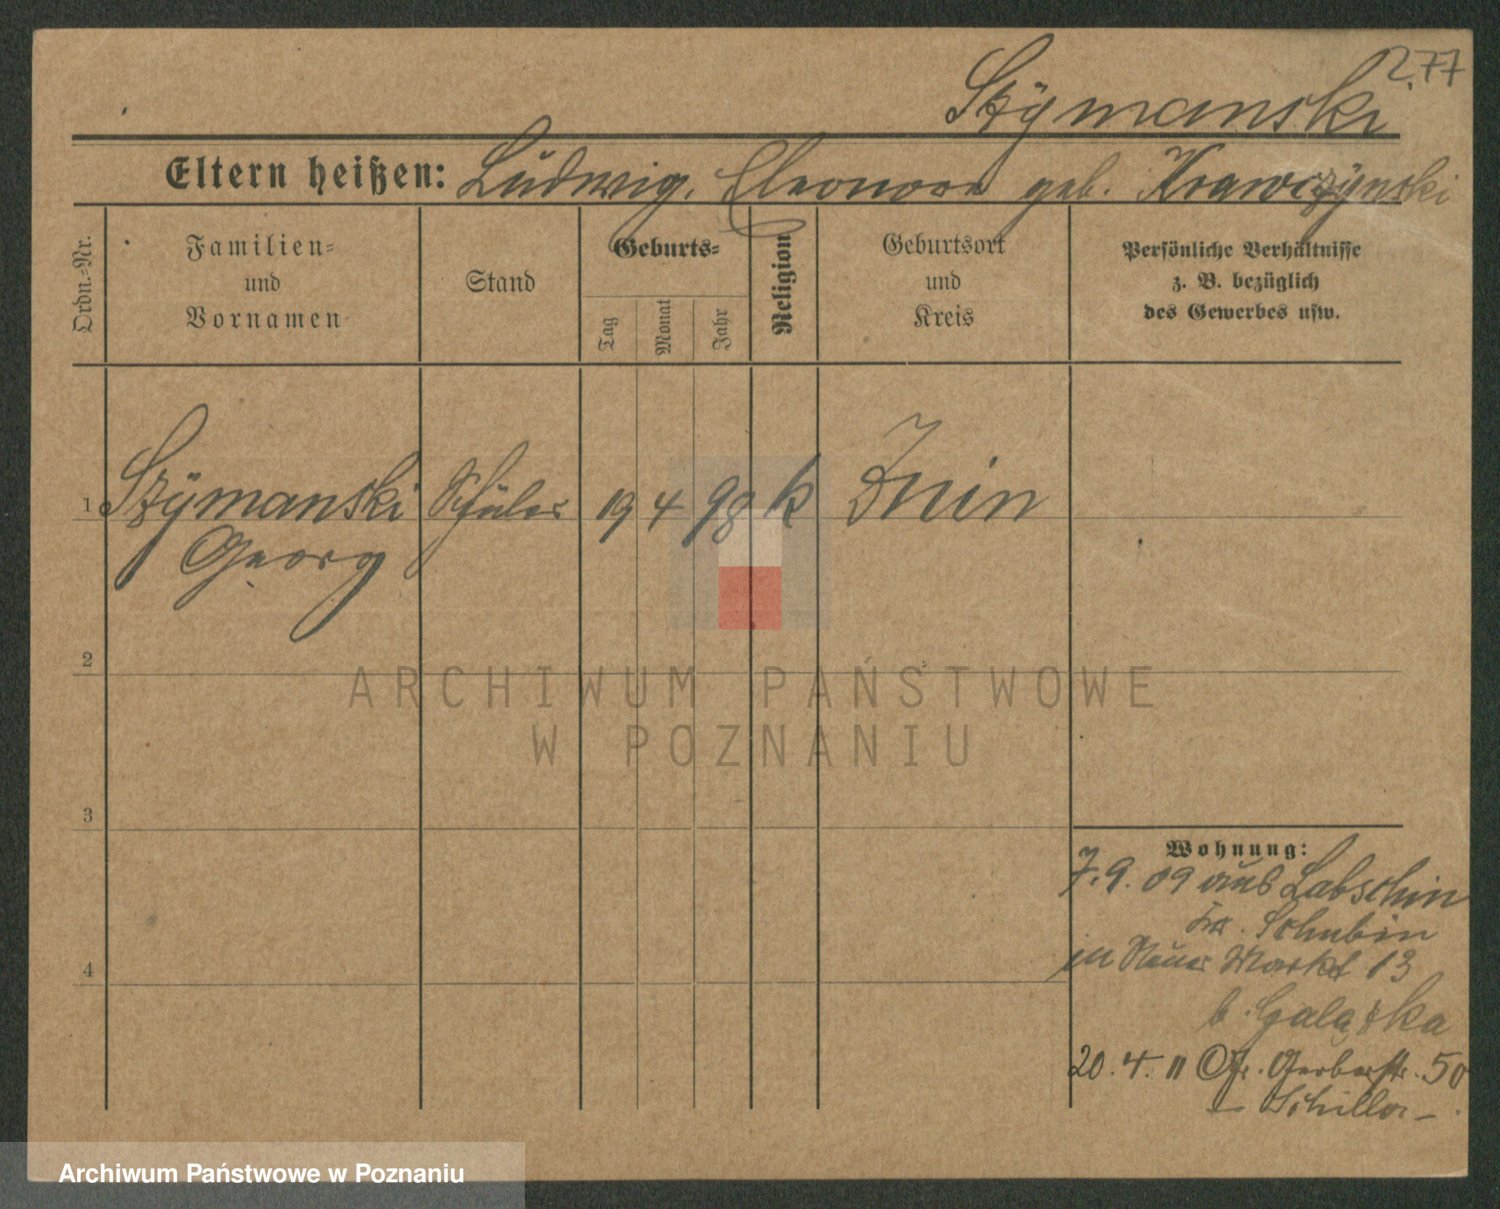 277
Szÿmanski
Eltern heißen: Ludwig, Eleonore geb. Krawczÿnski
Ordn.=Nr.
Familien=
und
Vornamen
Stand
Geburts=
Tag
Monat
Jahr
Religion
Geburtsort
und
Kreis
Persönliche Verhältnisse
z. B. bezüglich
des Gewerbes usw.
1 Szÿmanski Schüler 19 4 98 k Znin
Georg
2
3
4
ARCHIWUM PAŃSTWOWE
W POZNANIU
Wohnung:
7.9.09 aus Labschin
Kr. Schubin
in Neuer Markt 13
b. Galązka
20.4.11 Gr. Gerberstr. 50
– Schiller –
Archiwum Państwowe w Poznaniu